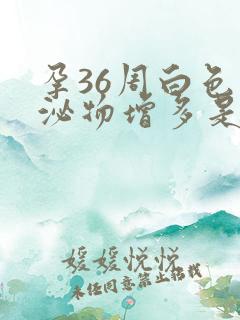 孕36周白色
泌物增多是
媛媛悦悦
未经同意禁止搭载